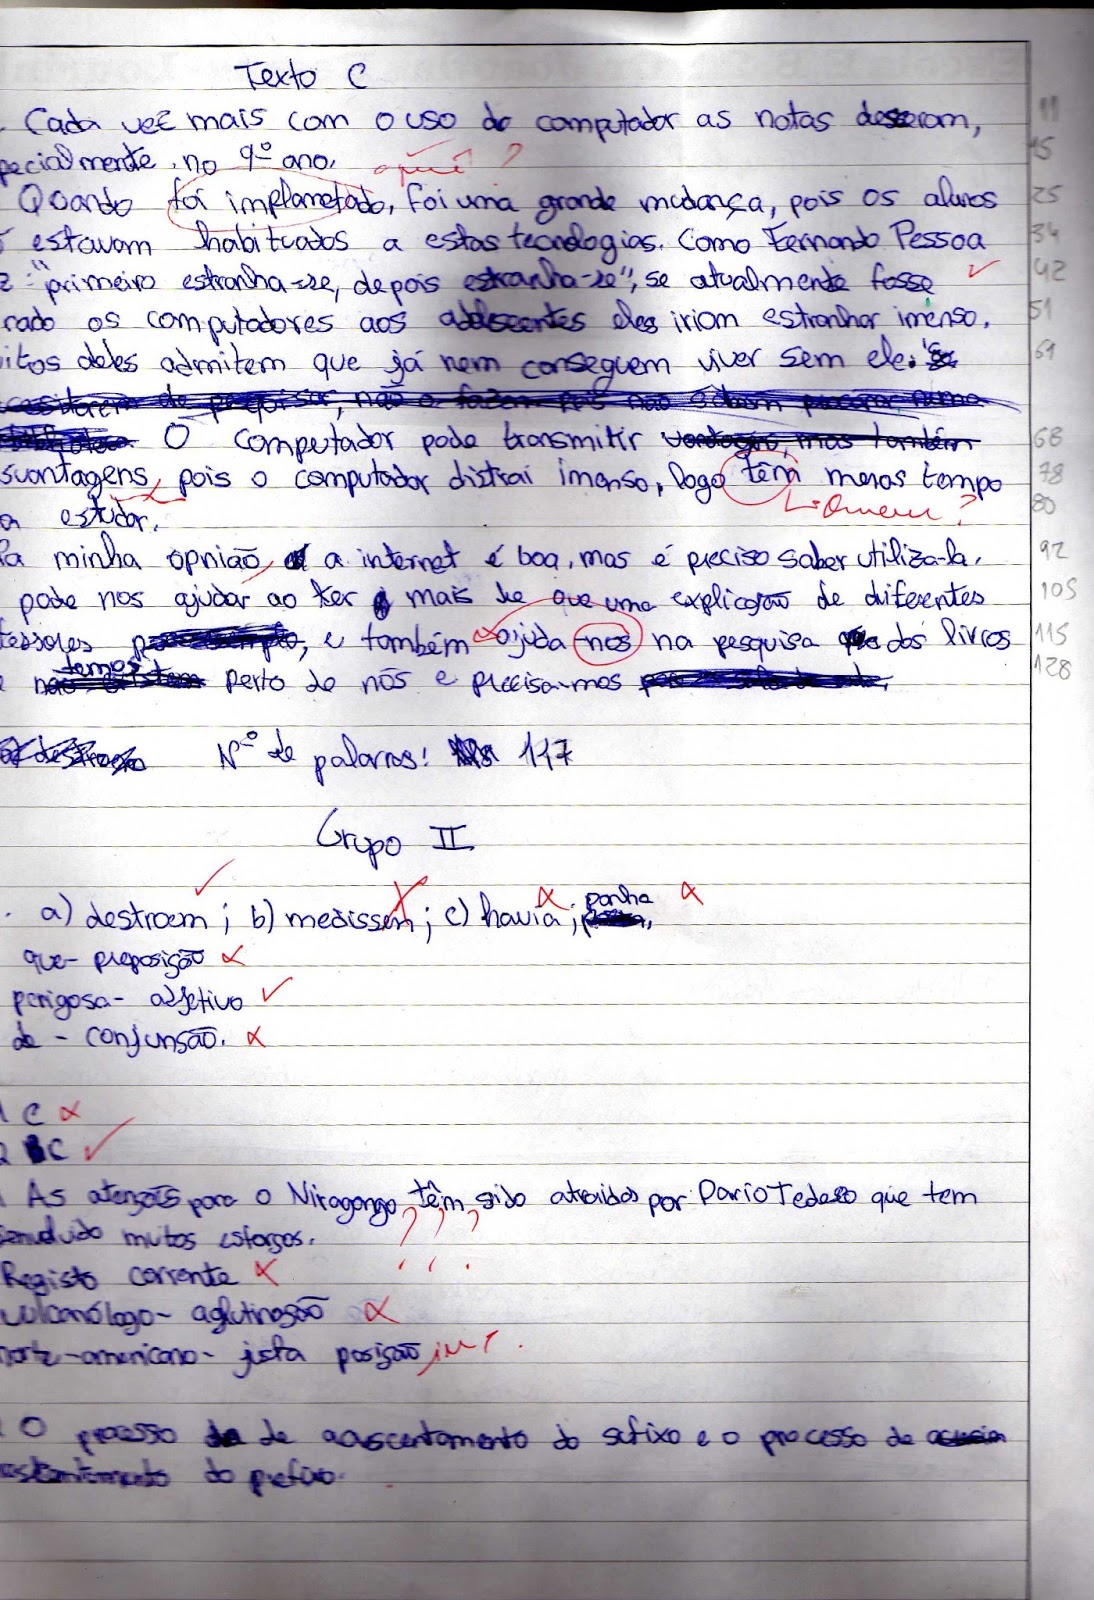 Texto C
. Cada vez mais com o uso do computador as notas desceram, 11
pecialmente, no 9º ano. 15
o quê?
Quando foi implametado, foi uma grande mudança, pois os alunos 25
estavam habituados a estas tecnologias. Como Fernando Pessoa 34
z "primeiro estranha-se, depois estranha-se", se atualmente fosse 42
rado os computadores aos adolescentes eles iriam estranhar imenso. 51
itos deles admitem que já nem conseguem viver sem ele. 61
O computador pode transmitir 68
svantagens, pois o computador distrai imenso, logo têm menos tempo 78
a estudar. Quem? 80
a minha opnião, a internet é boa, mas é preciso saber utiliza-la. 92
pode nos ajudar ao ter mais de que uma explicação de diferentes 105
fessores, e também ajuda nos na pesquisa dos livros 115
temos perto de nós e precisa-mos 128
Nº de palavras: 117
Grupo II
. a) destroem; b) medissem; c) havia; ponha
que- preposição
perigosa- adjetivo
de - conjunsão.
1 C
2 C
As atenções para o Niragongo têm sido atraidas por Dario Tedesco que tem
senvolvido muitos esforços.
Registo corrente
vulcanólogo- aglutinação
norte-americano- justa posição
O processo de acuscentamento do sufixo e o processo de
do prefixo.